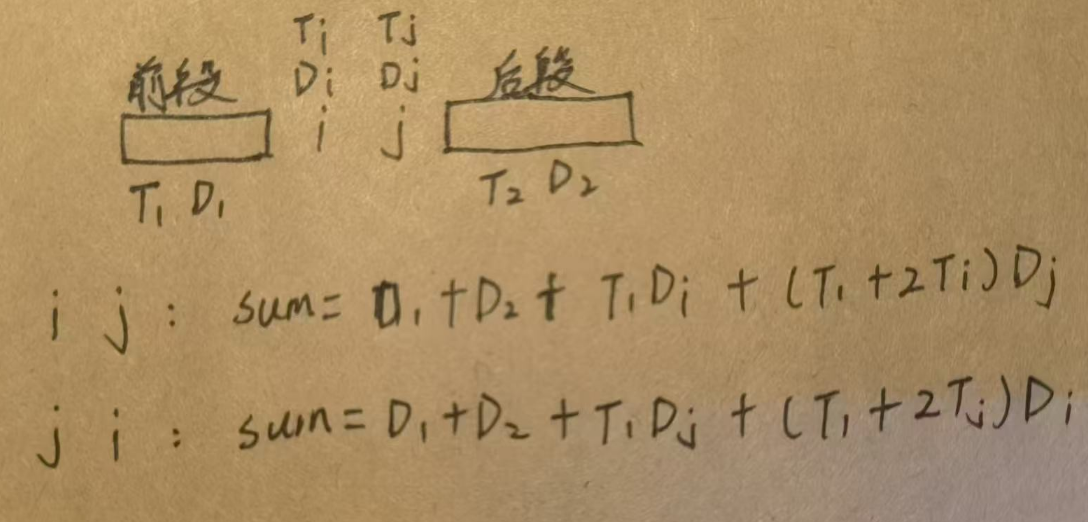 Ti Tj
前段 Di Dj 后段
i j
T₁ D₁ T₂ D₂
i j : sum= D₁+D₂+ T₁Di + (T₁+2Ti)Dj
j i : sum= D₁+D₂ + T₁Dj + (T₁+2Tj)Di